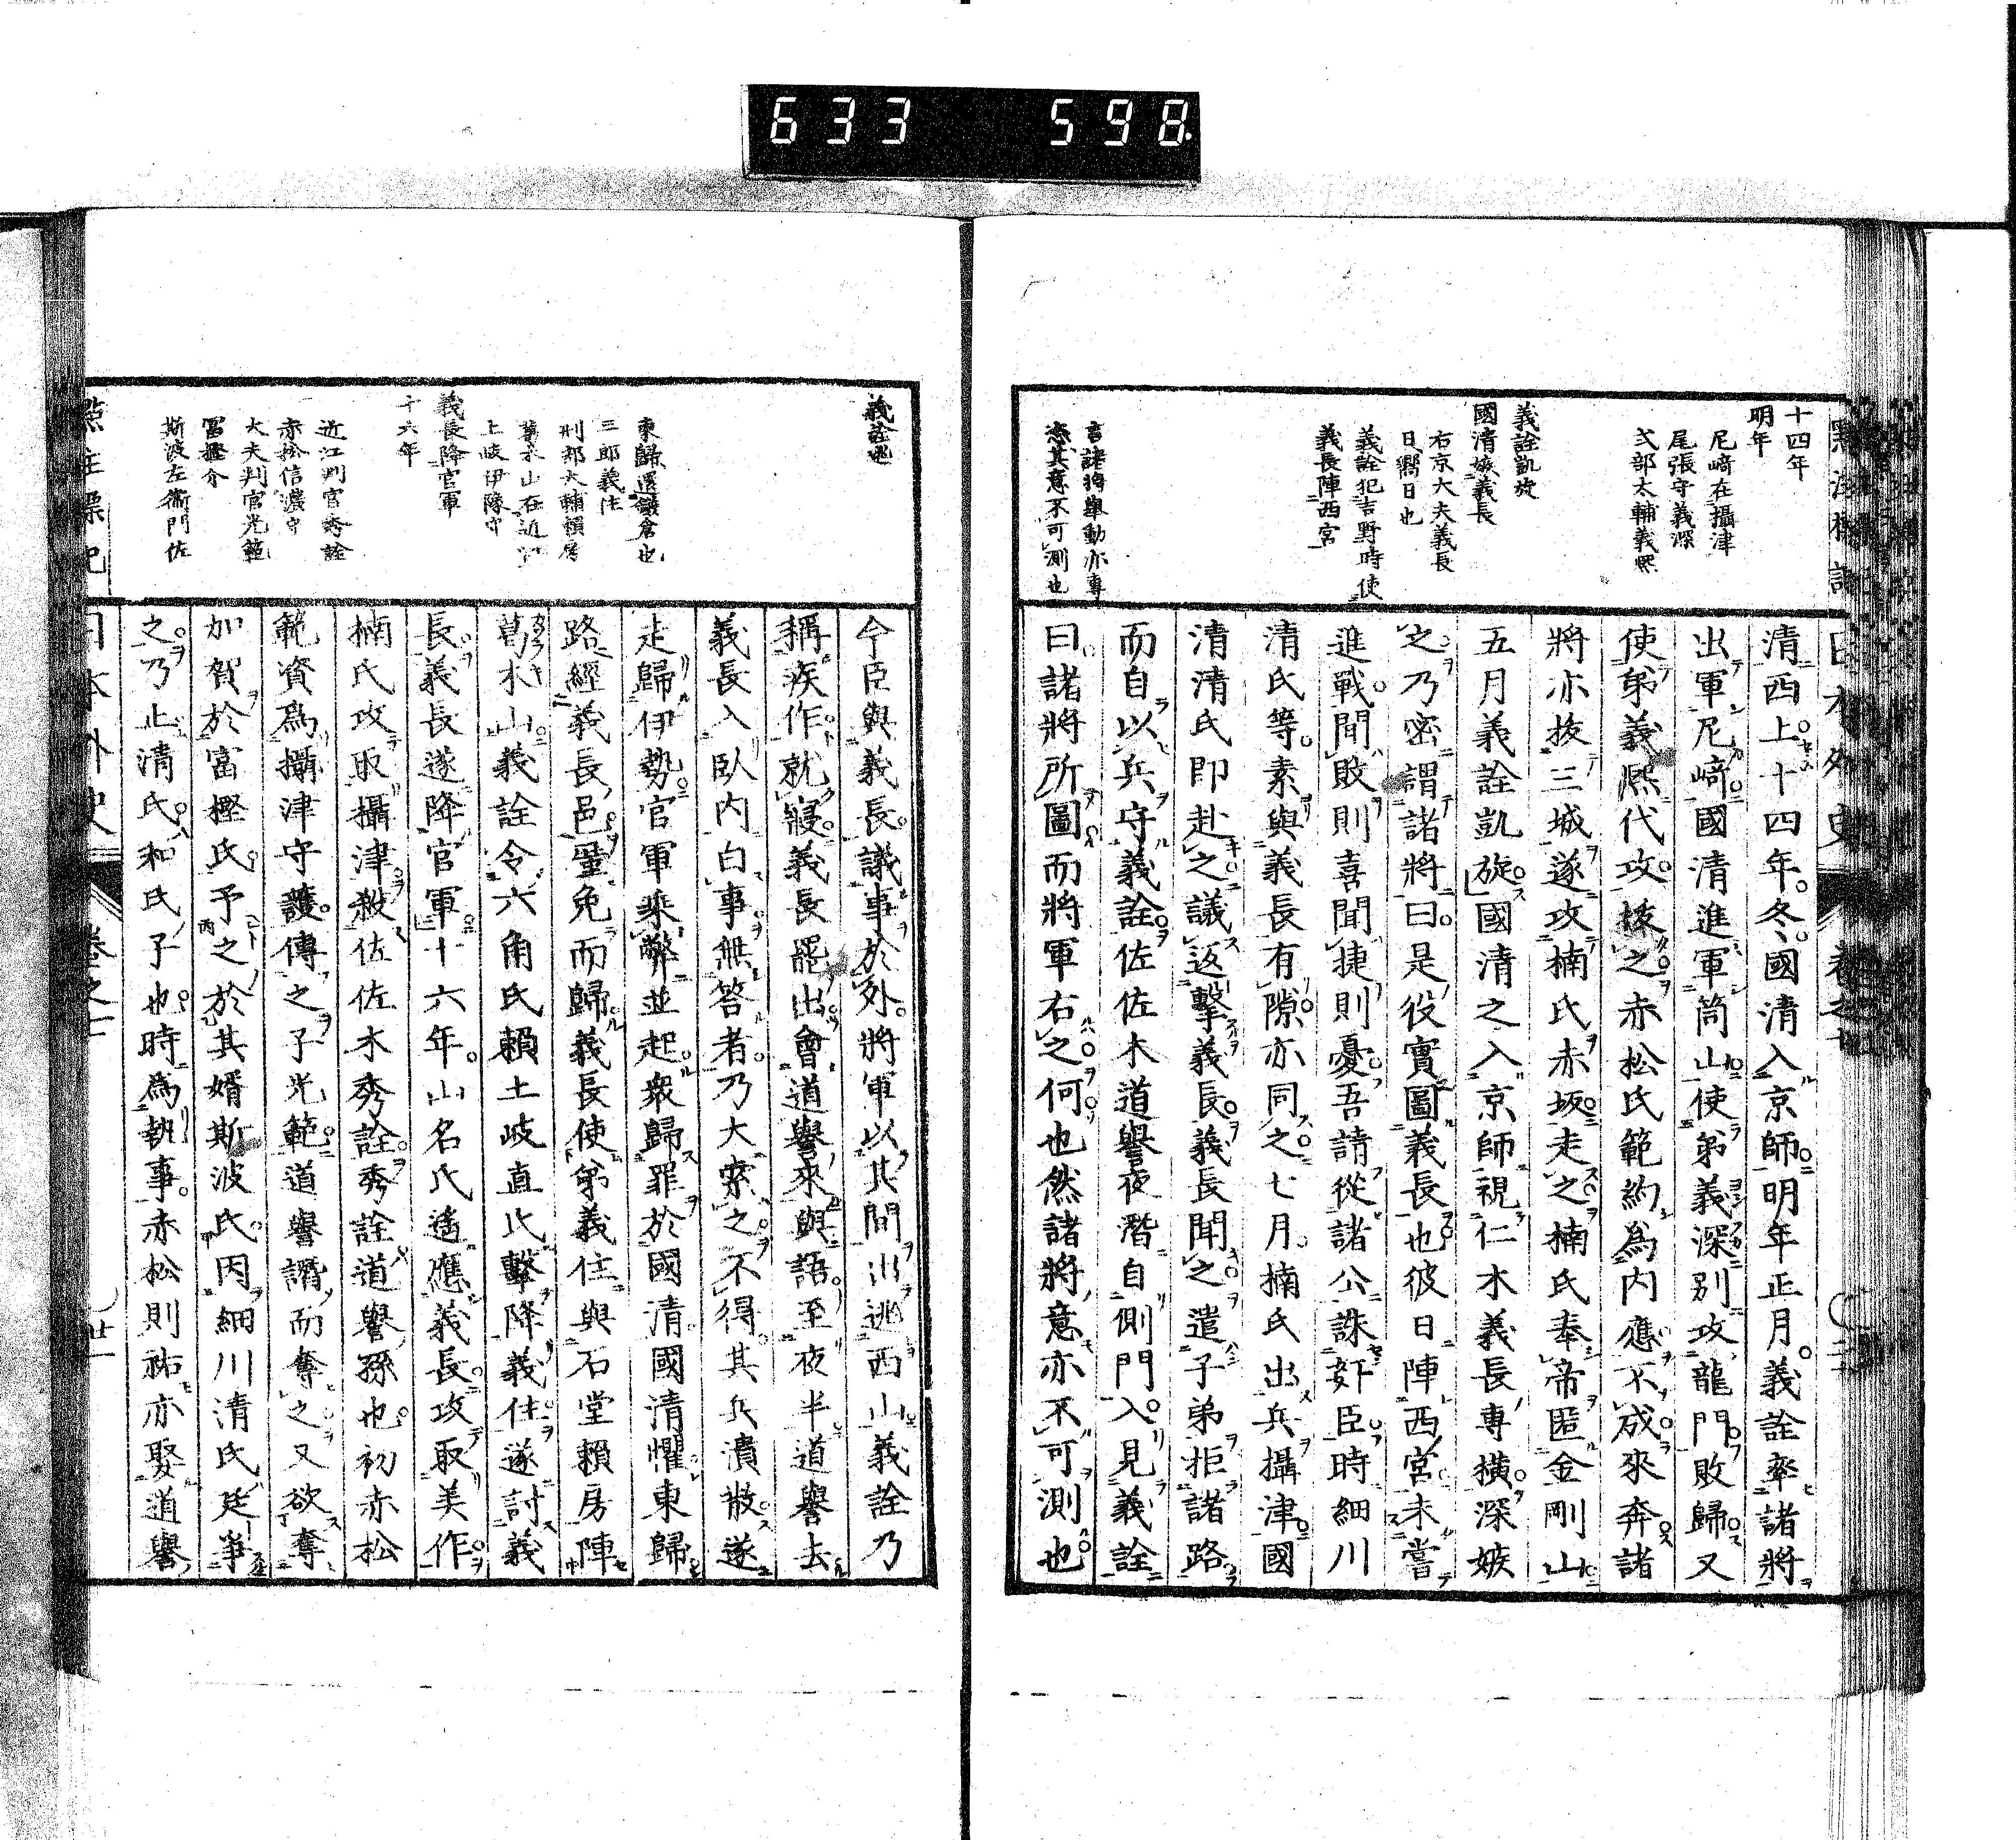 633 598
點注標記
日本外史
卷之七
十四年
明年
尼﨑在攝津
尾張守義深
式部太輔義熈
義詮凱旋
國清嫉義長
右京大夫義長
日嚮日也
義詮犯吉野時使
義長陣西宮
言諸將舉動亦專
恣其意不可測也
清西上十四年冬國清入京師明年正月義詮率諸將
出軍尼﨑國清進軍筒山使弟義深别攻龍門敗歸又
使弟義熈代攻拔之赤松氏範約爲内應不成來奔諸
將亦拔三城遂攻楠氏赤坂走之楠氏奉帝匿金剛山
五月義詮凱旋國清之入京師視仁木義長專横深嫉
之乃密謂諸將曰是役實圖義長也彼日陣西宮未嘗
進戰聞敗則喜聞捷則憂吾請從諸公誅奸臣時細川
清氏等素與義長有隙亦同之七月楠氏出兵攝津國
清清氏即赴之議返擊義長義長聞之遣子弟拒諸路
而自以兵守義詮佐佐木道譽夜潛自側門入見義詮
曰諸將所圖而將軍右之何也然諸將意亦不可測也
義詮逃
東歸還鎌倉也
三郎義住
刑部大輔頼房
葛木山在近江
土岐伊豫守
義長降官軍
十六年
近江判官秀詮
赤松信濃守
大夫判官光範
富樫介
斯波左衞門佐
今臣與義長議事於外將軍以其間出逃西山義詮乃
稱疾作就寢義長罷出會道譽來與語至夜半道譽去
義長入臥内白事無答者乃大索之不得其兵潰散遂
走歸伊勢官軍乘弊並起衆歸罪於國清國清懼東歸
路經義長邑僅免而歸義長使弟義住與石堂頼房陣
葛木山義詮令六角氏頼土岐直氏擊降義住遂討義
長義長遂降官軍十六年山名氏遙應義長攻取美作
楠氏攻取攝津殺佐佐木秀詮秀詮道譽孫也初赤松
範資爲攝津守護傳之子光範道譽譖而奪之又欲奪
加賀於富樫氏予之於其婿斯波氏因細川清氏廷爭
之乃止清氏和氏子也時爲執事赤松則祐亦娶道譽
點注標記
日本外史
卷之七
廿一